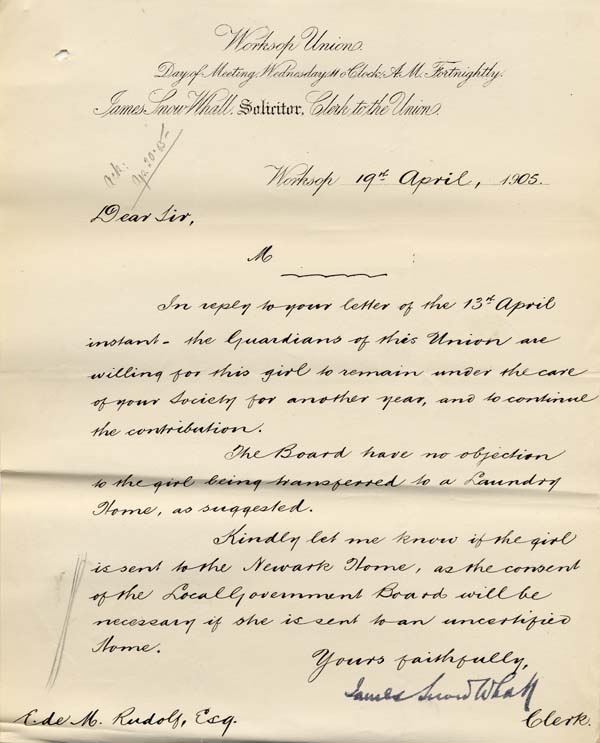 Worksop Union.
Day of Meeting, Wednesday 11 o'Clock, A.M. Fortnightly.
James Snow Whall, Solicitor, Clerk to the Union.
Worksop 19th April, 1905.
Dear Sir,
M
In reply to your letter of the 13th April
instant - the Guardians of this Union are
willing for this girl to remain under the care
of your Society for another year, and to continue
the contribution.
The Board have no objection
to the girl being transferred to a Laundry
Home, as suggested.
Kindly let me know if the girl
is sent to the Newark Home, as the consent
of the Local Government Board will be
necessary if she is sent to an uncertified
Home.
Yours faithfully,
James Snow Whall
E. de M. Rudolf, Esq.
Clerk.